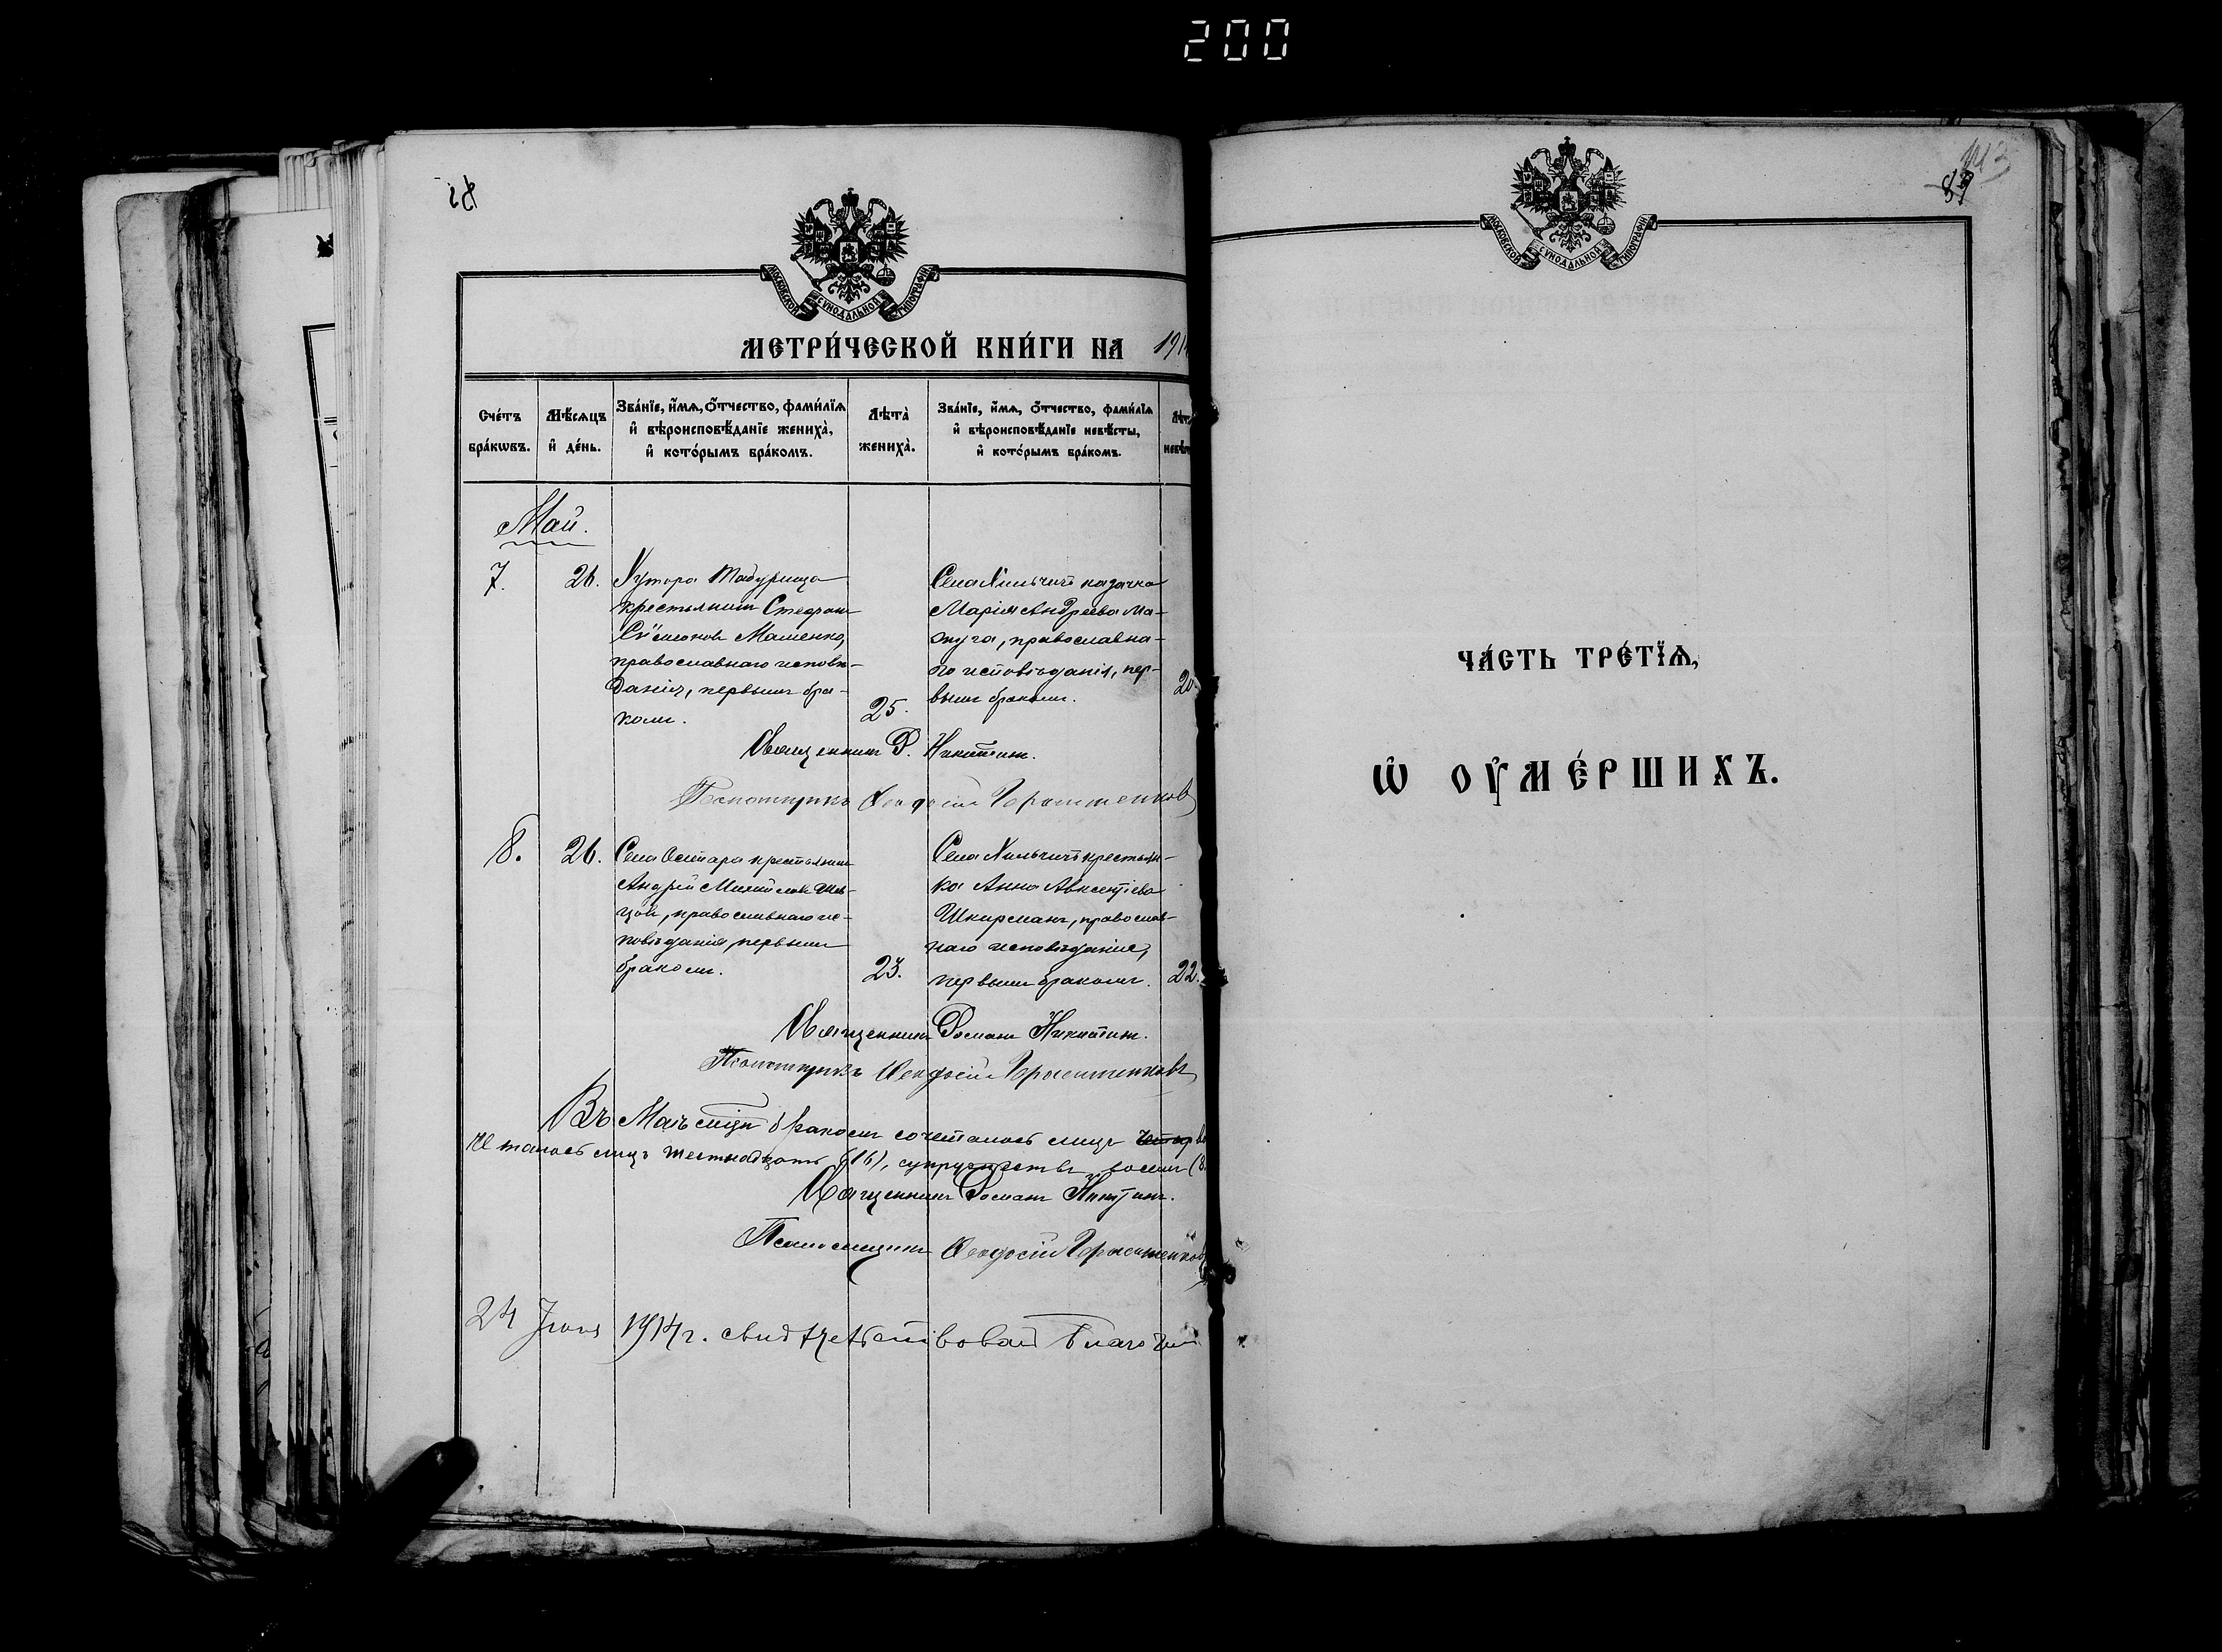 200
МОСКОВСКОЙ СѴНОДАЛЬНОЙ ТИПОГРАФІИ
МЕТРИ́ЧЕСКОЙ КНИ́ГИ НА 191
Сче́тъ бра́кѡвъ.
Мѣ́сѧцъ и҆ де́нь.
Зва́нїе, и҆́мѧ, ѻ҆́тчество, фами́лїѧ и҆ вѣроисповѣ́данїе жениха̀, и҆ кото́рымъ бра́комъ.
Лѣта̀ жениха̀.
Зва́нїе, и҆́мѧ, ѻ҆́тчество, фами́лїѧ и҆ вѣроисповѣ́данїе невѣ́сты, и҆ кото́рымъ бра́комъ.
Май.
7.
26.
Хутора
крестьянинъ Стефанъ
Сѷмеоновъ Машенко,
православнаго исповѣ-
данія, первымъ бра-
комъ.
25.
Села Хильчичъ казачка
Марія Андреева Ма-
жуга, православна-
го исповѣданія, пер-
вымъ бракомъ.
20.
Священникъ Р. Никитинъ.
Псаломщикъ Ѳеодосій
8.
26.
Села крестьянинъ
Андрей Михайловъ Шев-
цовъ, православнаго ис-
повѣданія, первымъ
бракомъ.
23.
Села Хильчичъ крестьян-
ка Анна Авксентіева
православ-
наго исповѣданія,
первымъ бракомъ.
22.
Священникъ Романъ Никитинъ.
Псаломщикъ Ѳеодосій
Въ Маѣ мѣсяцѣ бракомъ сочеталось лицъ
лицъ шестнадцать (16), супружествъ восемь (8
Священникъ Романъ Никитинъ.
Псаломщикъ Ѳеодосій
24 Іюня 1914 г. свидѣтельствовалъ Благочин
МОСКОВСКОЙ СѴНОДАЛЬНОЙ ТИПОГРАФІИ
ЧА́СТЬ ТРЕ́ТЇѦ,
Ѡ҆ ОУ҆МЕ́РШИХЪ.